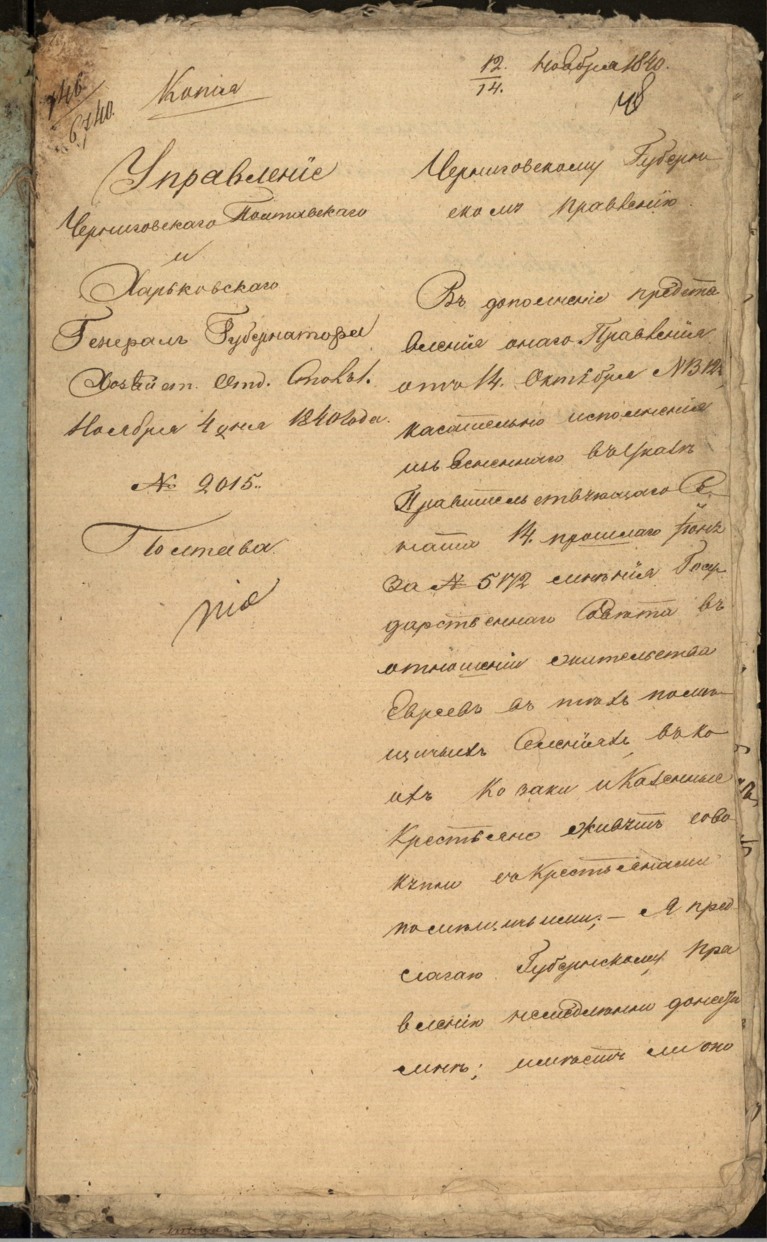 746
6740.
Копія
12. Ноября 1840.
14.
48
Управленіе
Черниговскаго Полтавскаго
и
Харьковскаго
Генералъ Губернатора
Хозяйст. Отд. Столъ 1.
Ноября 4 дня 1840 года.
№ 2015.
Полтава
Черниговскому Губерн
скому Правленію.
Въ дополненіе предста
вленія онаго Правленія
отъ 14. Октября №
касательно исполненія
изъясненнаго въ Указѣ
Правительствующаго Се
ната 14. прошлаго Іюня
за № 5172 мнѣнія Госу
дарственнаго Совѣта въ
отношеніи жительства
Евреевъ въ тѣхъ помѣ
щичьихъ Селеніяхъ, въ ко
ихъ Козаки и Казенные
Крестьяне живутъ сово
купно съ Крестьянами
помѣщичьими; — Я пред
лагаю Губернскому Пра
вленію немедленно донести
мнѣ; имѣетъ ли оно